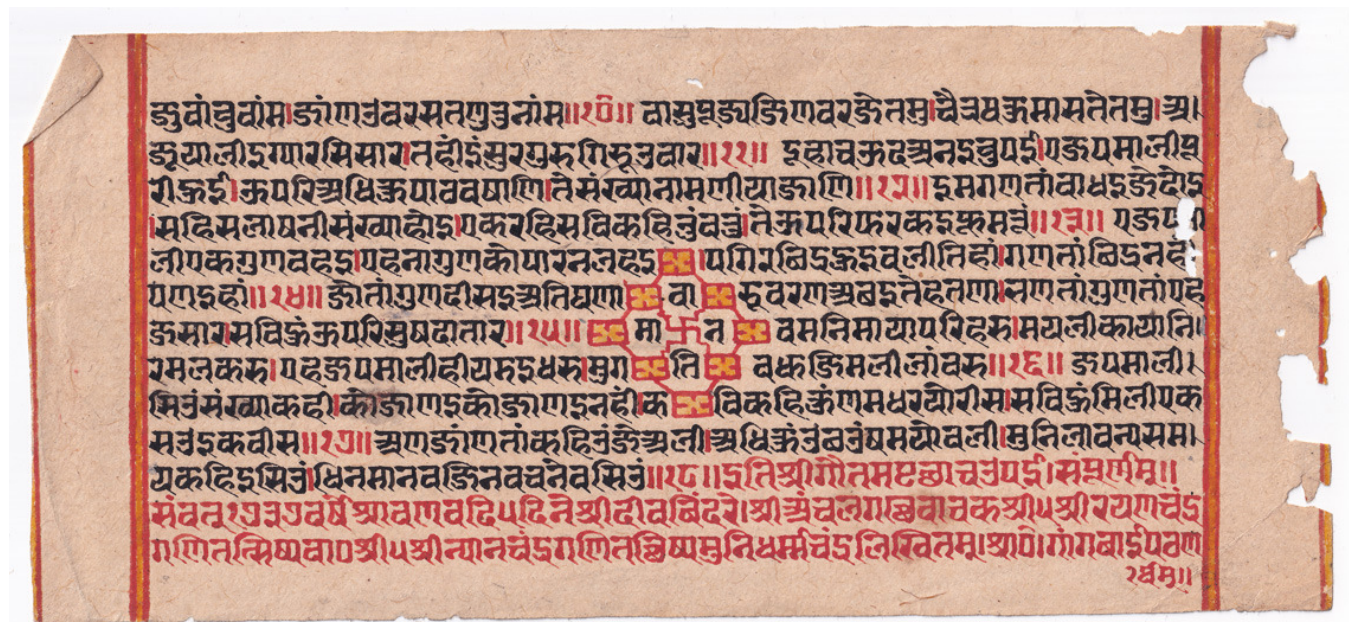 जुवांचुवांम।जांणउवरसतणुउनांम॥१०॥ वासुपूज्यजिणवरजेतमु।चैत्रषऊमासतेतमु।अ।
जूयालीइग्यारसिसार।तहींइंसुरगुरुगिरूउवार॥११॥ दूहाचऊदअनइचुपई।एजपमालीपू
रीऊई।ऊपरिअधिकपाववषाणि।तेसंख्यानामणीयाजाणि॥१२॥ इमगणतांवाधइजेदोइ
।सहिसलाषनीसंख्याहोइ।एकरहिसविकहिनुंवचुं।तेऊपरिफरकइफूमतुं॥१३॥ एजप
लीएकगुणवहइ।एहनागुणकोपारनलहइ ।एगिरबिइठइवलीतिहां।गणतांबिइनह
पणइहां॥१४॥ जोतांगुणदीसइअतिघणा वा रूवरणअबइतेहतणा।भणतांगुणतांएह
जसार।सविहुंऊपरिसुषदातार॥१५॥ मा न वमनिमायापरिहरु।मयलीकायानि।
रमलकरु।एहजपमालीहीयमइधरु।मुग ति वधूजिमलीलांवरु॥१६॥ जपमाली।
सिउंसंख्याकही।कोजाणइकोजाणइनही।क विकहिऊंणमधरयोरीस।सविहुंमिलीएक
सउइकवीस॥१७॥ अणजांणतांकहिउंजेअली।अधिकउंउछउंषमयोवली।मुनिलावन्यसमा।
यकहिइसिउं।धिनमानवजिनवचनेवसिउं॥१८॥इतिश्रीगौतमपृछाचउपई।संपूर्णम्॥
संवत्१७३७वर्षेश्रावणवदि५दिनेश्रीदीवबिंदरे।श्रीअंचलगच्छेवाचकश्री५श्रीरयणचंद्र
गणितत्सिष्यवा०श्री५श्रीन्यानचंद्रगणितच्छिष्यमुनिधर्म्मचंद्रलिखितम्।श्रा०।गांगबाईपठण
र्थम्॥